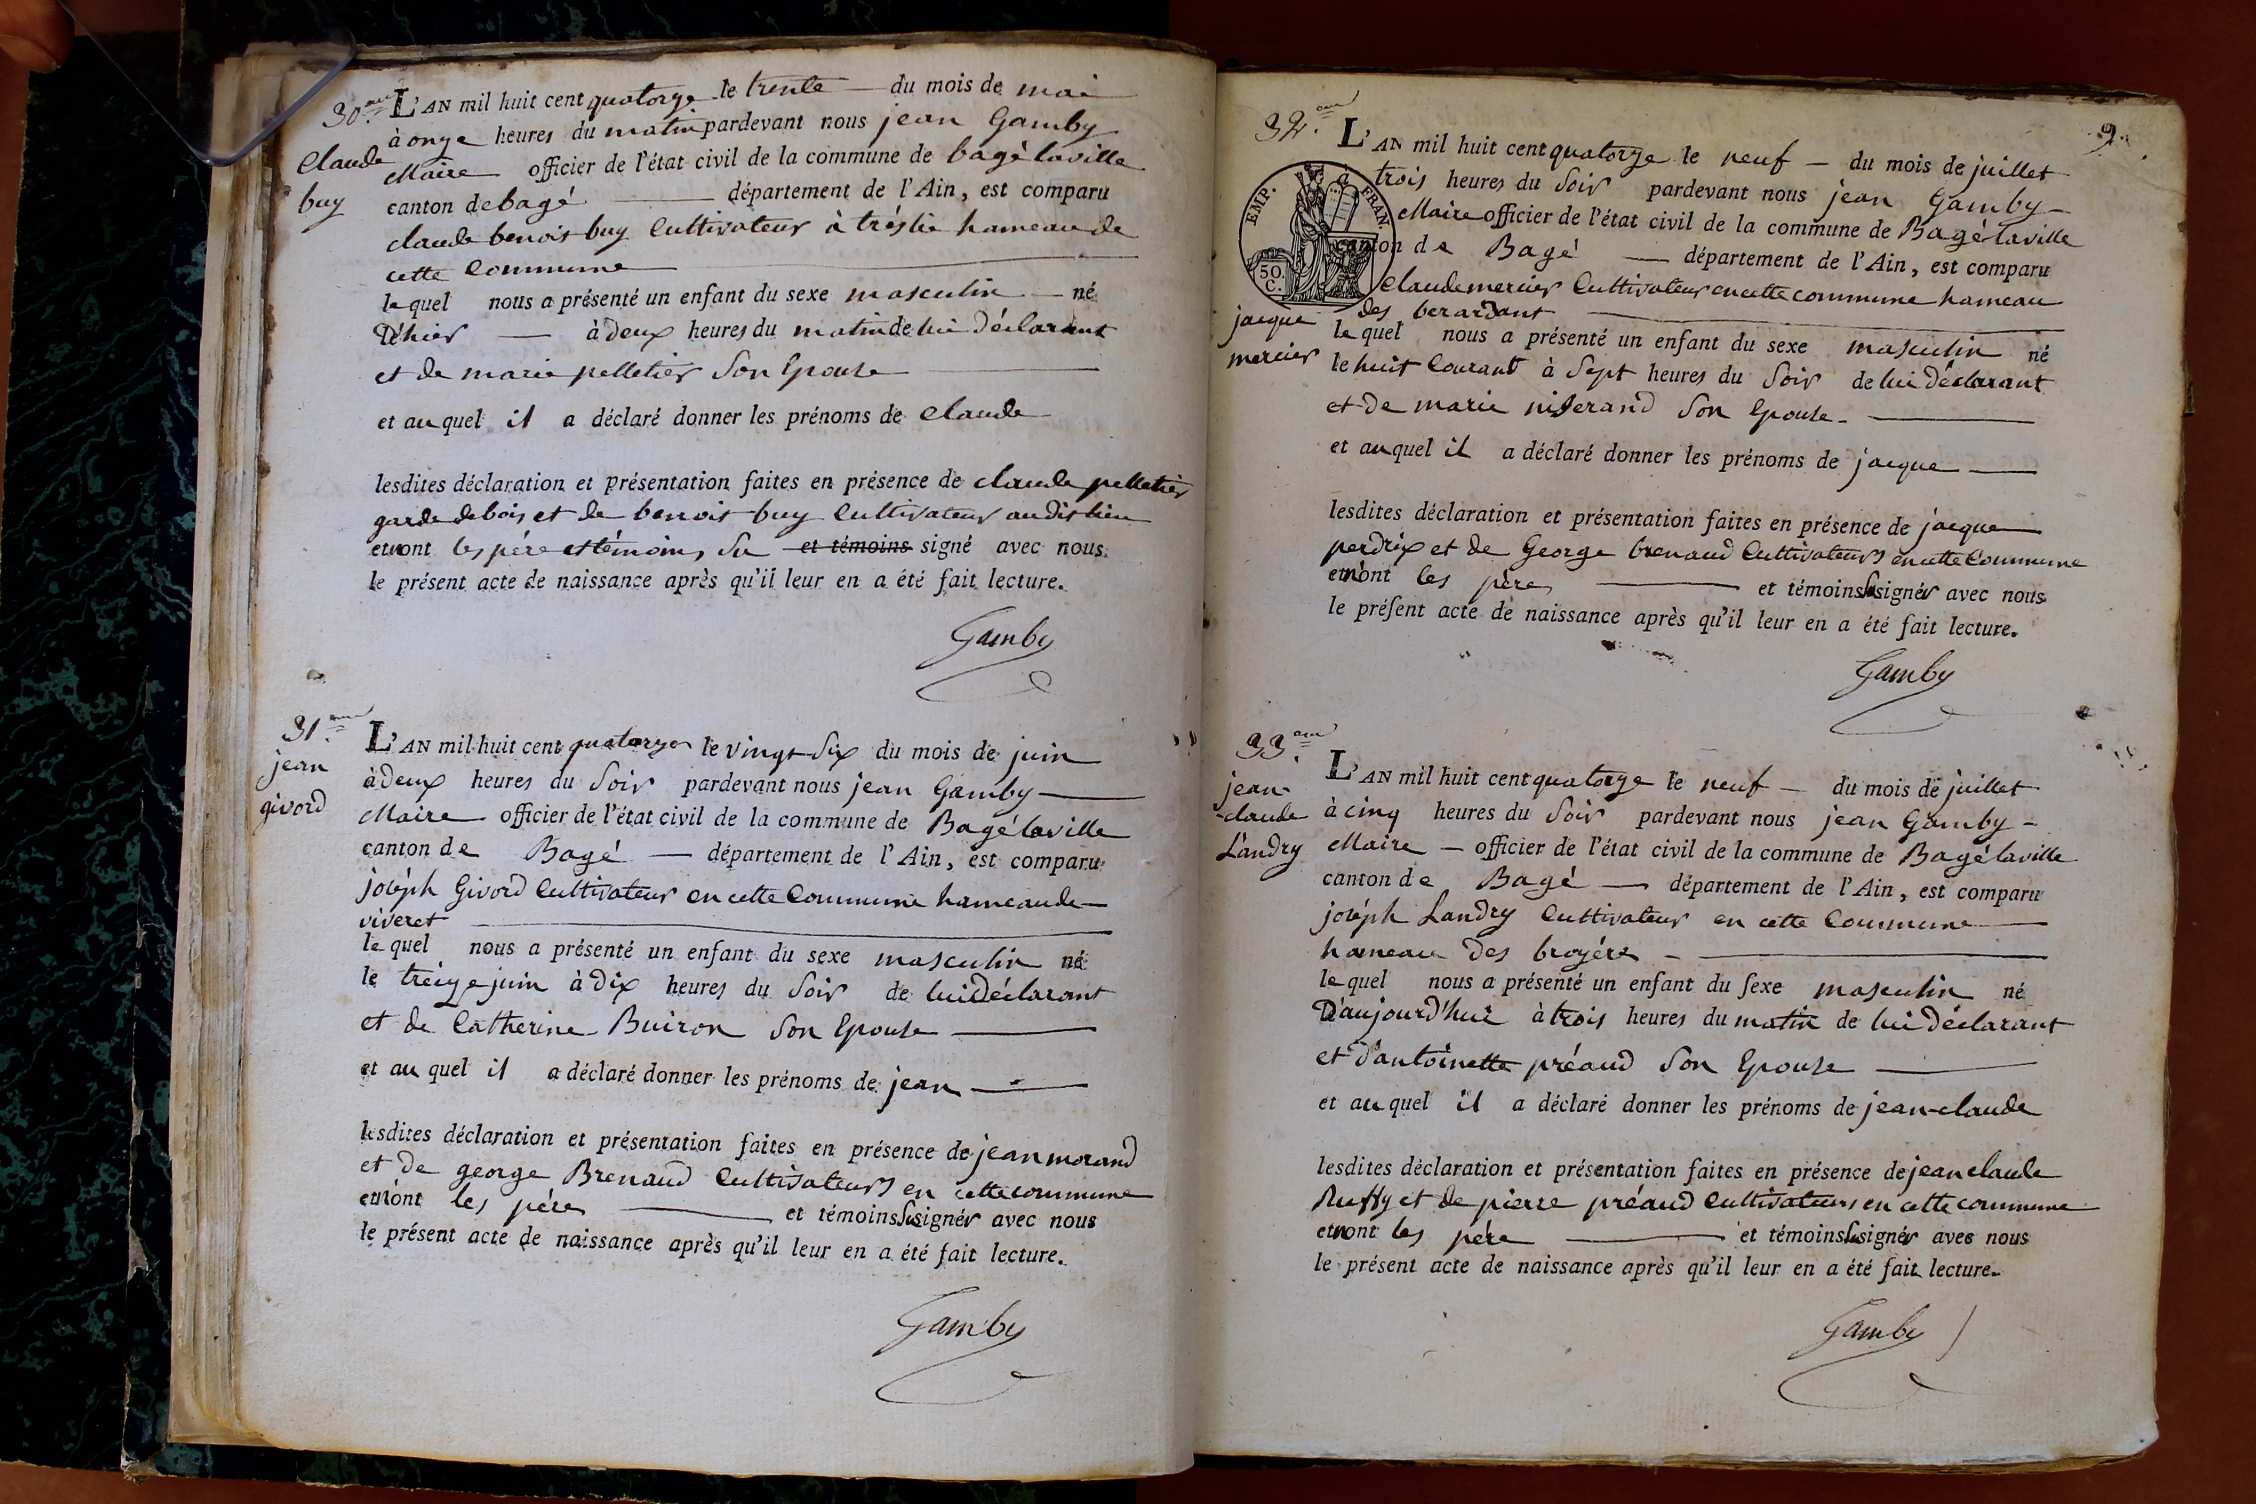 30.eme
Claude
buy
L'AN mil huit cent quatorze le trente du mois de mai
à onze heures du matin pardevant nous jean Gamby
Maire officier de l'état civil de la commune de bagé laville
canton de bagé département de l'Ain, est comparu
claude benoit buy Cultivateur à tréslie hameau de
cette Commune
le quel nous a présenté un enfant du sexe masculin né
D'hier à deux heures du matin de lui déclarant
et de marie pelletier Son Epouse
et au quel il a déclaré donner les prénoms de claude
lesdites déclaration et présentation faites en présence de claude pelletier
garde de bois et de benoit buy Cultivateur audit lieu
et n'ont les pére et témoins Su et témoins signé avec nous
le présent acte de naissance après qu'il leur en a été fait lecture.
Gamby
31.eme
jean
givord
L'AN mil huit cent quatorze le vingt Six du mois de juin
à deux heures du Soir pardevant nous jean Gamby
Maire officier de l'état civil de la commune de Bagé laville
canton de Bagé département de l'Ain, est comparu
joséph Givord Cultivateur en cette Commune hameau de
viveret
le quel nous a présenté un enfant du sexe masculin né
le treize juin à dix heures du Soir de lui déclarant
et de Catherine Buiron Son Epouse
et au quel il a déclaré donner les prénoms de jean
lesdites déclaration et présentation faites en présence de jean morand
et de george Brenaud Cultivateurs en cette commune
et n'ont les pére et témoins Su signér avec nous
le présent acte de naissance après qu'il leur en a été fait lecture.
Gamby
9.
32.eme
EMP. FRAN.
50.
C.
jacque
mercier
L'AN mil huit cent quatorze le neuf du mois de juillet
à trois heures du Soir pardevant nous jean Gamby
Maire officier de l'état civil de la commune de Bagé laville
canton de Bagé département de l'Ain, est comparu
Claude mercier Cultivateur en cette commune hameau
des berardant
le quel nous a présenté un enfant du sexe masculin né
le huit Courant à Sept heures du Soir de lui déclarant
et de marie niserand Son Epouse
et au quel il a déclaré donner les prénoms de jacque
lesdites déclaration et présentation faites en présence de jacque
perdrix et de George brenaud Cultivateurs en cette Commune
et n'ont les pére et témoins Su signér avec nous
le présent acte de naissance après qu'il leur en a été fait lecture.
Gamby
33.eme
jean
claude
Landry
L'AN mil huit cent quatorze le neuf du mois de juillet
à cinq heures du Soir pardevant nous jean Gamby
Maire officier de l'état civil de la commune de Bagé laville
canton de Bagé département de l'Ain, est comparu
joséph Landry Cultivateur en cette Commune
hameau des broyéres
le quel nous a présenté un enfant du sexe masculin né
D'aujourd'hui à trois heures du matin de lui déclarant
et d'antoinette préaud Son Epouse
et au quel il a déclaré donner les prénoms de jean-claude
lesdites déclaration et présentation faites en présence de jean claude
Ruffy et de pierre préaud Cultivateurs en cette commune
et n'ont les pére et témoins Su signér avec nous
le présent acte de naissance après qu'il leur en a été fait lecture.
Gamby